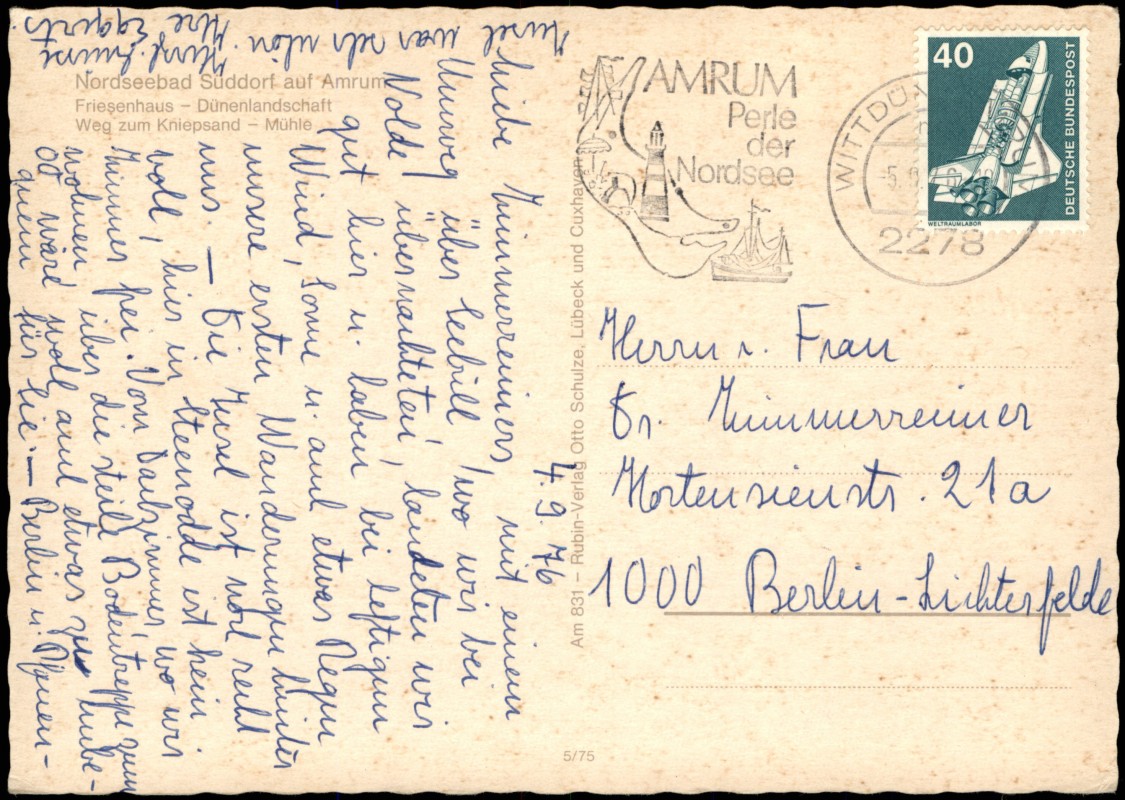 Nordseebad Süddorf auf Amrum
Friesenhaus – Dünenlandschaft
Weg zum Kniepsand – Mühle
4.9.76
Liebe Zimmerreimers, mit einem
Umweg über Seebüll (wo wir bei
Nolde übernachteten), landeten wir
gut hier u. haben bei heftigem
Wind, Sonne u. auch etwas Regen
unsere ersten Wanderungen hinter
uns. — Die Insel ist noch recht
voll, hier in Steenodde ist kein
Zimmer frei. Vom Dachzimmer, wo wir
wohnen über die steile Bodentreppe zum
00 wäre wohl auch etwas zu unbe-
quem für Sie. — Berlin u.
Insel war sehr schön.
Herzl. Grüsse
Ihre Eggerts.
Am 831 – Rubin-Verlag Otto Schulze, Lübeck und Cuxhaven
5/75
AMRUM
Perle
der
Nordsee
WITTDÜ
2278
40
DEUTSCHE BUNDESPOST
WELTRAUMLABOR
Herrn u. Frau
Dr. Zimmerreimer
Hortensienstr. 21a
1000 Berlin-Lichterfelde